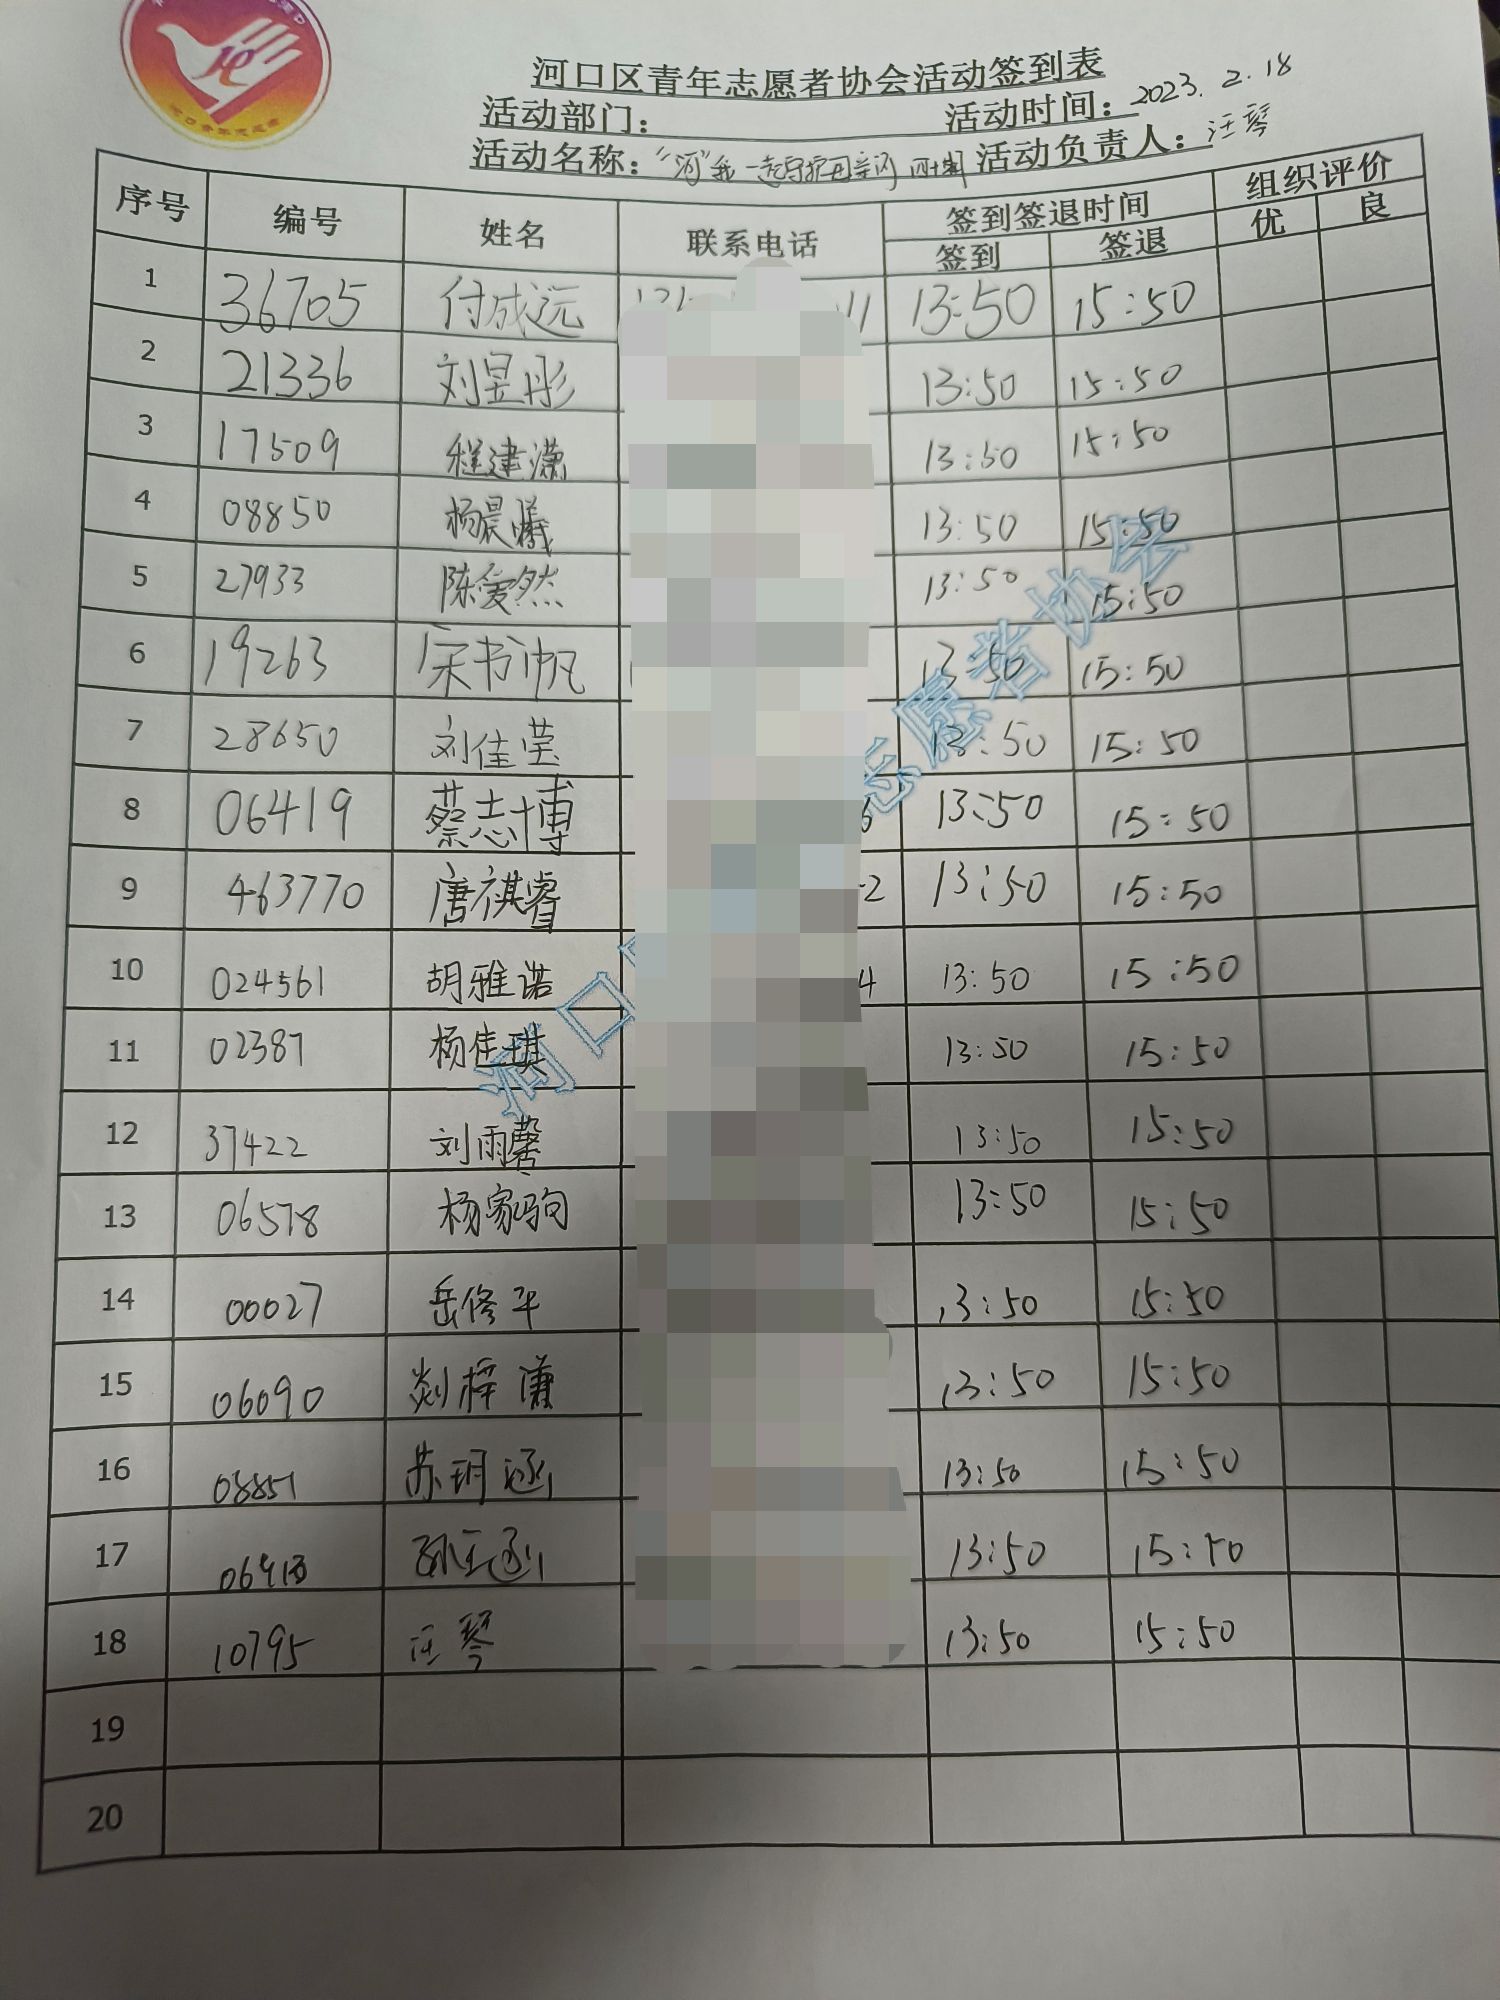 河口区青年志愿者协会活动签到表
活动部门： 活动时间：2023.2.18
活动名称：“河”我一起守护母亲河 活动负责人：汪琴
序号 编号 姓名 联系电话 签到签退时间 组织评价
签到 签退 优 良
1 36705 付成远 13:50 15:50
2 21336 刘昱彤 13:50 15:50
3 17509 程建潇 13:50 15:50
4 08850 杨晨曦 13:50 15:50
5 27933 陈爱然 13:50 15:50
6 19263 宋书帆 13:50 15:50
7 28650 刘佳莹 13:50 15:50
8 06419 蔡志博 13:50 15:50
9 463770 唐祺睿 2 13:50 15:50
10 024561 胡雅诺 4 13:50 15:50
11 02387 杨佳琪 13:50 15:50
12 37422 刘雨馨 13:50 15:50
13 06578 杨家驹 13:50 15:50
14 00027 岳修平 13:50 15:50
15 06090 梓谦 13:50 15:50
16 08851 苏玥涵 13:50 15:50
17 13:50 15:50
18 10795 汪琴 13:50 15:50
19
20
河口 志愿者协会